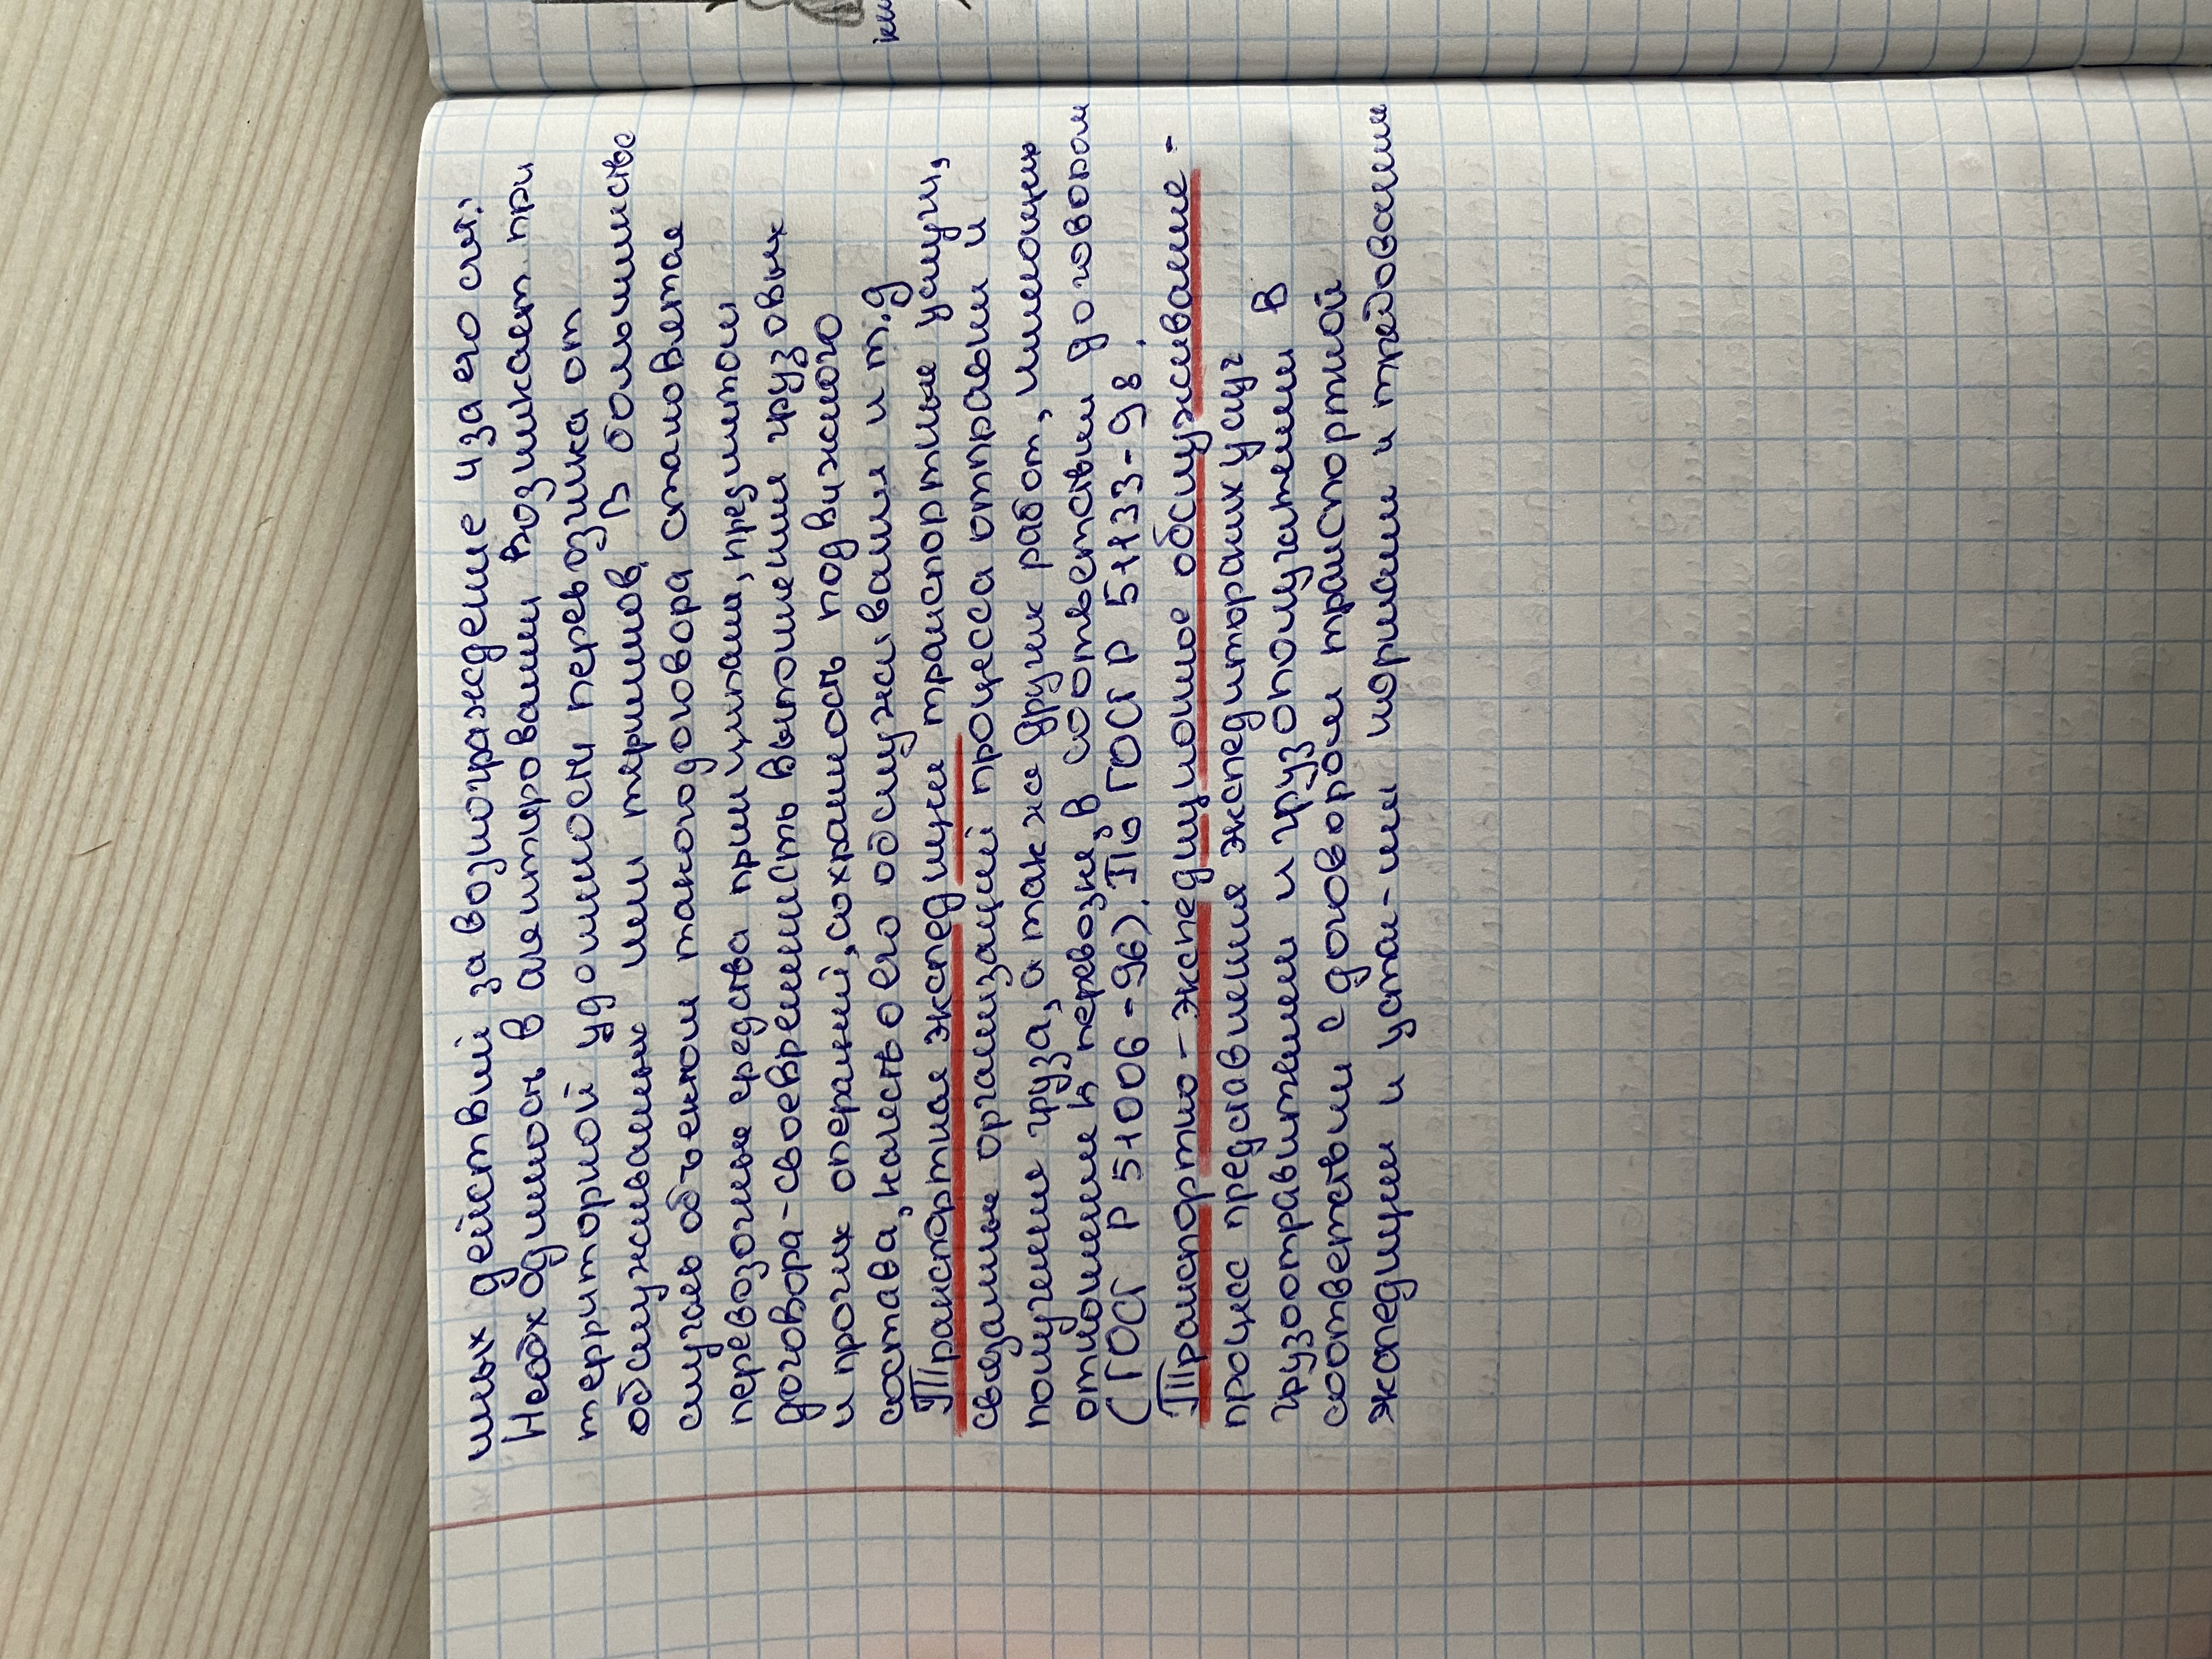 ных действий за вознаграждение и за его счт.
Необходимость в агентировании возникает при
территорной удолнности перевозчика от
обслуживаемых ими термин​лов. В большинстве
случаев объектом такого договора становветая
перевозочные средства принципала, предметом
договора-своевременность выполнения грузовых
и прочих операций, сохранность подвижного
состава, качество его обслуживания и т.д
Транспортная экспедиция транспортные услуги,
связанные организацией процесса отправки и
получения груза, а так же других работ, имеющих
отношении к перевозке, в соответствии договором
(ГОСТ Р 51006-96). По ГОСТ Р 51133-98.
Транспортно-экспедиционное обслуживание-
процесс предславления экспедиторских услуг
грузоотправителем и грузополучателем в
соответствии с договором транспортной
экспедиции и устан-ми нормами и требованиями